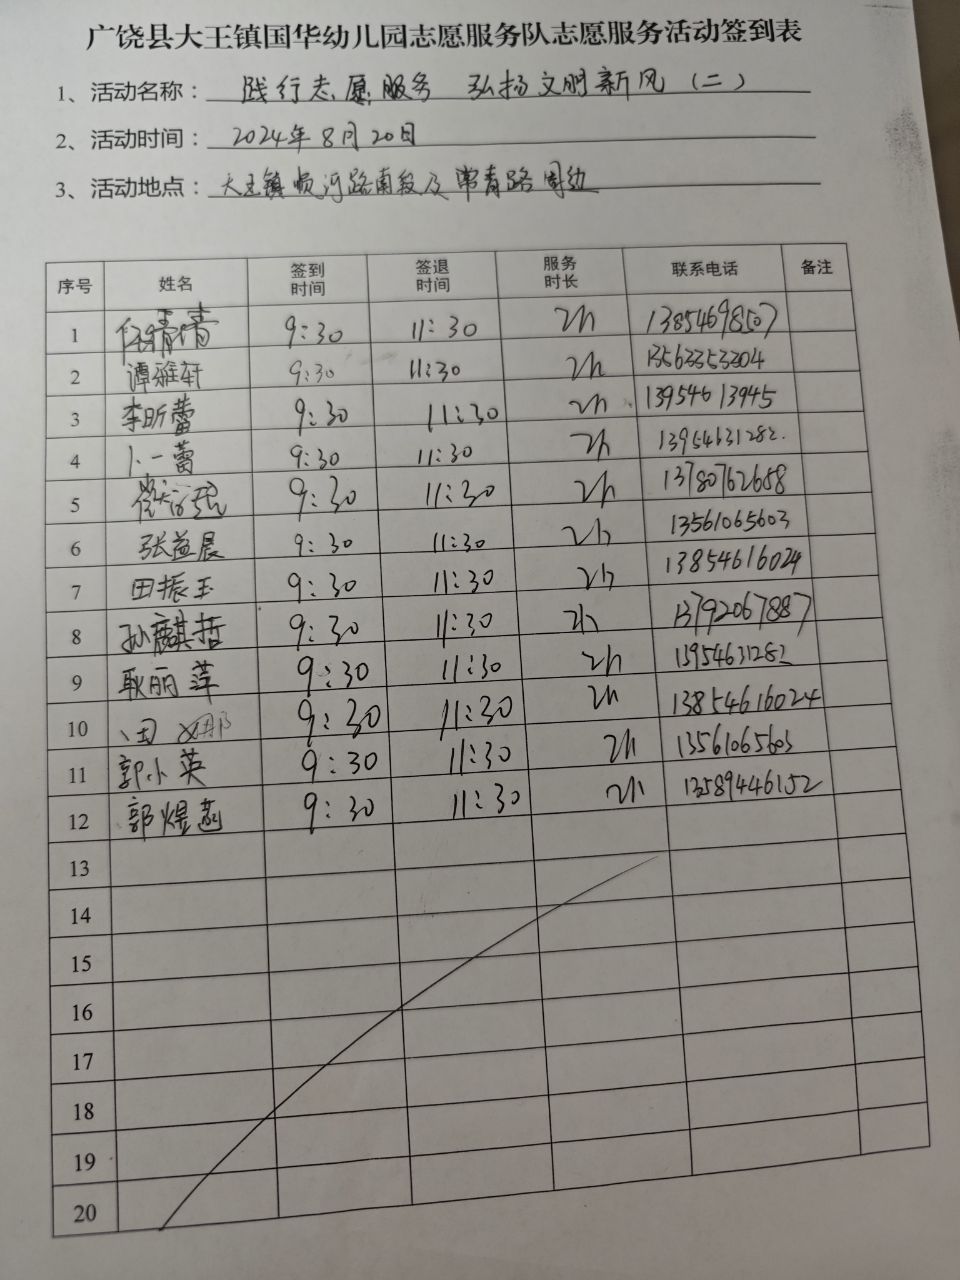 广饶县大王镇国华幼儿园志愿服务队志愿服务活动签到表
1、活动名称：践行志愿服务 弘扬文明新风（二）
2、活动时间：2024年8月20日
3、活动地点：大王镇顺河路南段及常青路周边
序号 姓名 签到时间 签退时间 服务时长 联系电话 备注
1 任精倩 9:30 11:30 2h 13854698507
2 谭雅轩 9:30 11:30 2h 13563353304
3 李昕蕾 9:30 11:30 2h 13954613945
4 卜一蕾 9:30 11:30 2h 13954631282.
5 9:30 11:30 2h 13780762688
6 张益晨 9:30 11:30 2h 13561065603
7 田振玉 9:30 11:30 2h 13854616024
8 孙麒哲 9:30 11:30 2h 13792067887
9 耿丽萍 9:30 11:30 2h 13954631282
10 田娜 9:30 11:30 2h 13854616024
11 郭小英 9:30 11:30 2h 13561065603
12 郭煜菡 9:30 11:30 2h 13589446152
13
14
15
16
17
18
19
20